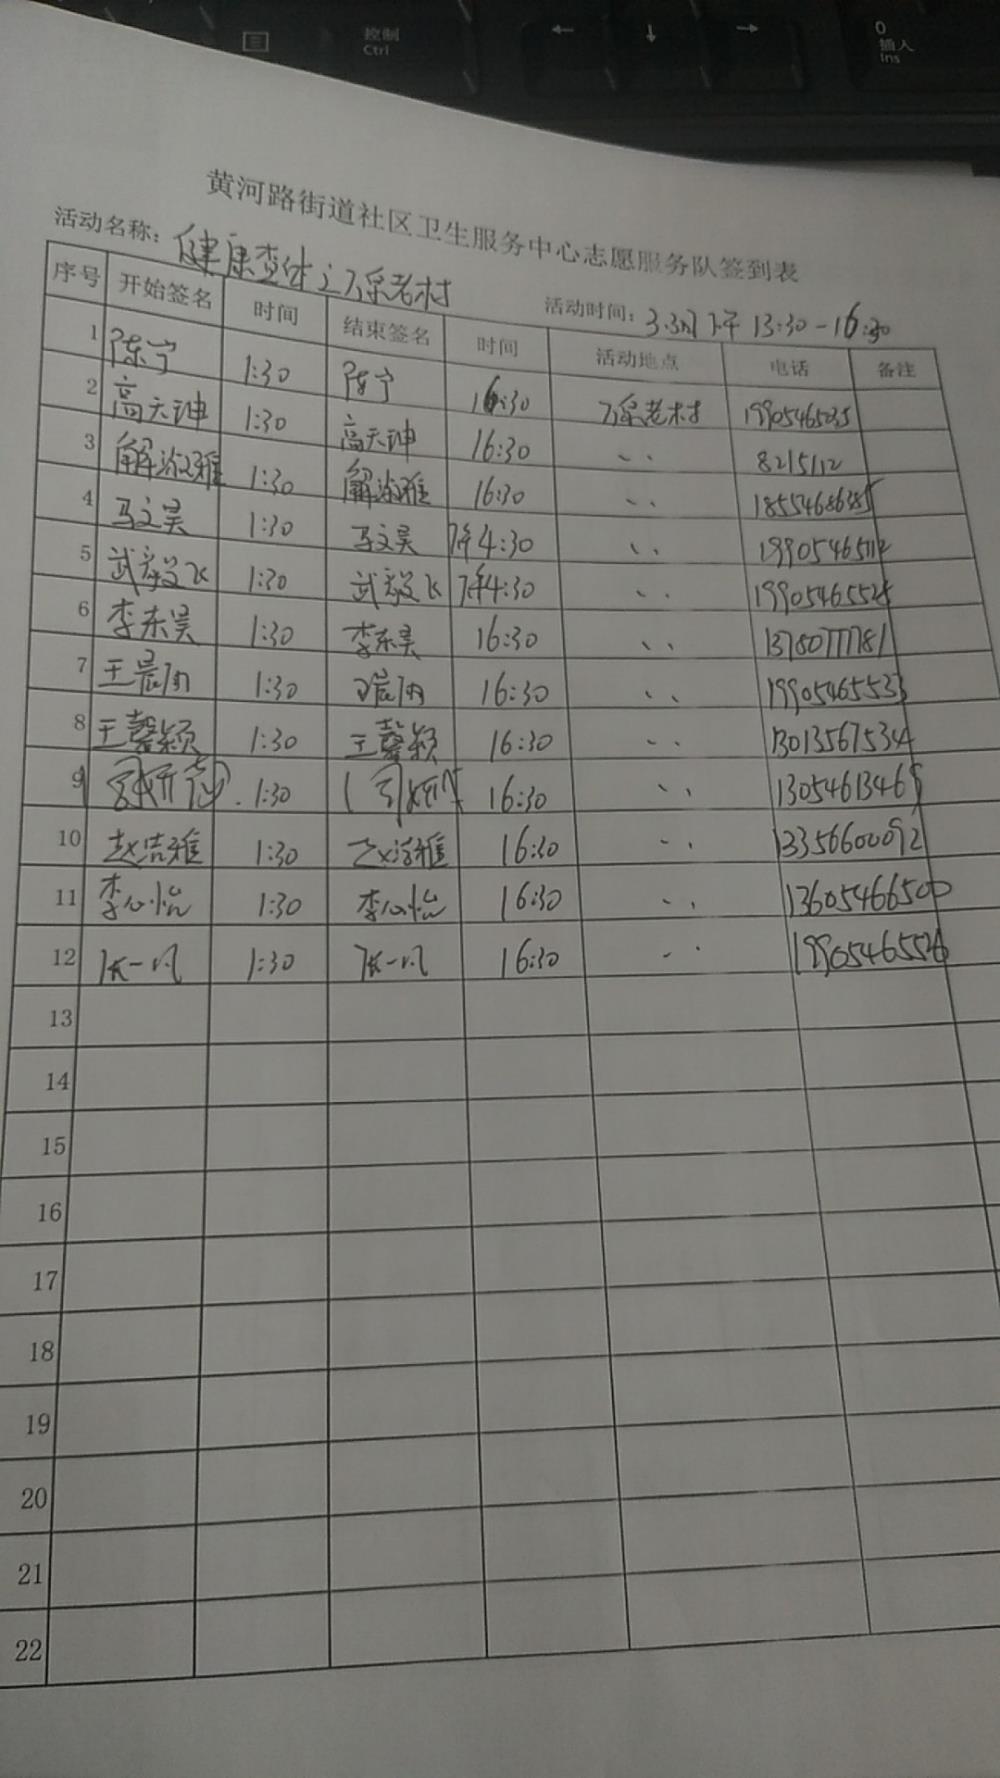 控制
Ctrl
←
↓
→
0
插入
Ins
黄河路街道社区卫生服务中心志愿服务队签到表
活动名称：健康查体之孙老村
活动时间：3.3日下午 13:30-16:30
序号 开始签名 时间 结束签名 时间 活动地点 电话 备注
1 陈宁 1:30 陈宁 16:30 老村 19905465035
2 高天珅 1:30 高天珅 16:30 〃 8215112
3 解淑雅 1:30 解淑雅 16:30 〃
4 马文昊 1:30 马文昊 下午4:30 〃
5 武毅飞 1:30 武毅飞 下午4:30 〃 19905465525
6 李东昊 1:30 李东昊 16:30 〃 13780777781
7 王晨雨 1:30 王晨雨 16:30 〃 19905465533
8 王馨颖 1:30 王馨颖 16:30 〃 13013567534
9 1:30 16:30 〃 13054613465
10 赵洁雅 1:30 赵洁雅 16:30 〃 13356600092
11 李心怡 1:30 李心怡 16:30 〃 13605466500
12 张一凡 1:30 张一凡 16:30 〃 19905465526
13
14
15
16
17
18
19
20
21
22